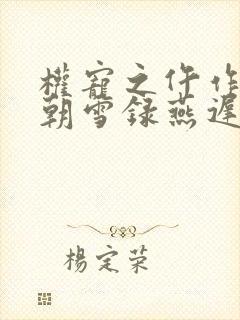 權寵之仵作
朝雪録燕遲
楊定荣